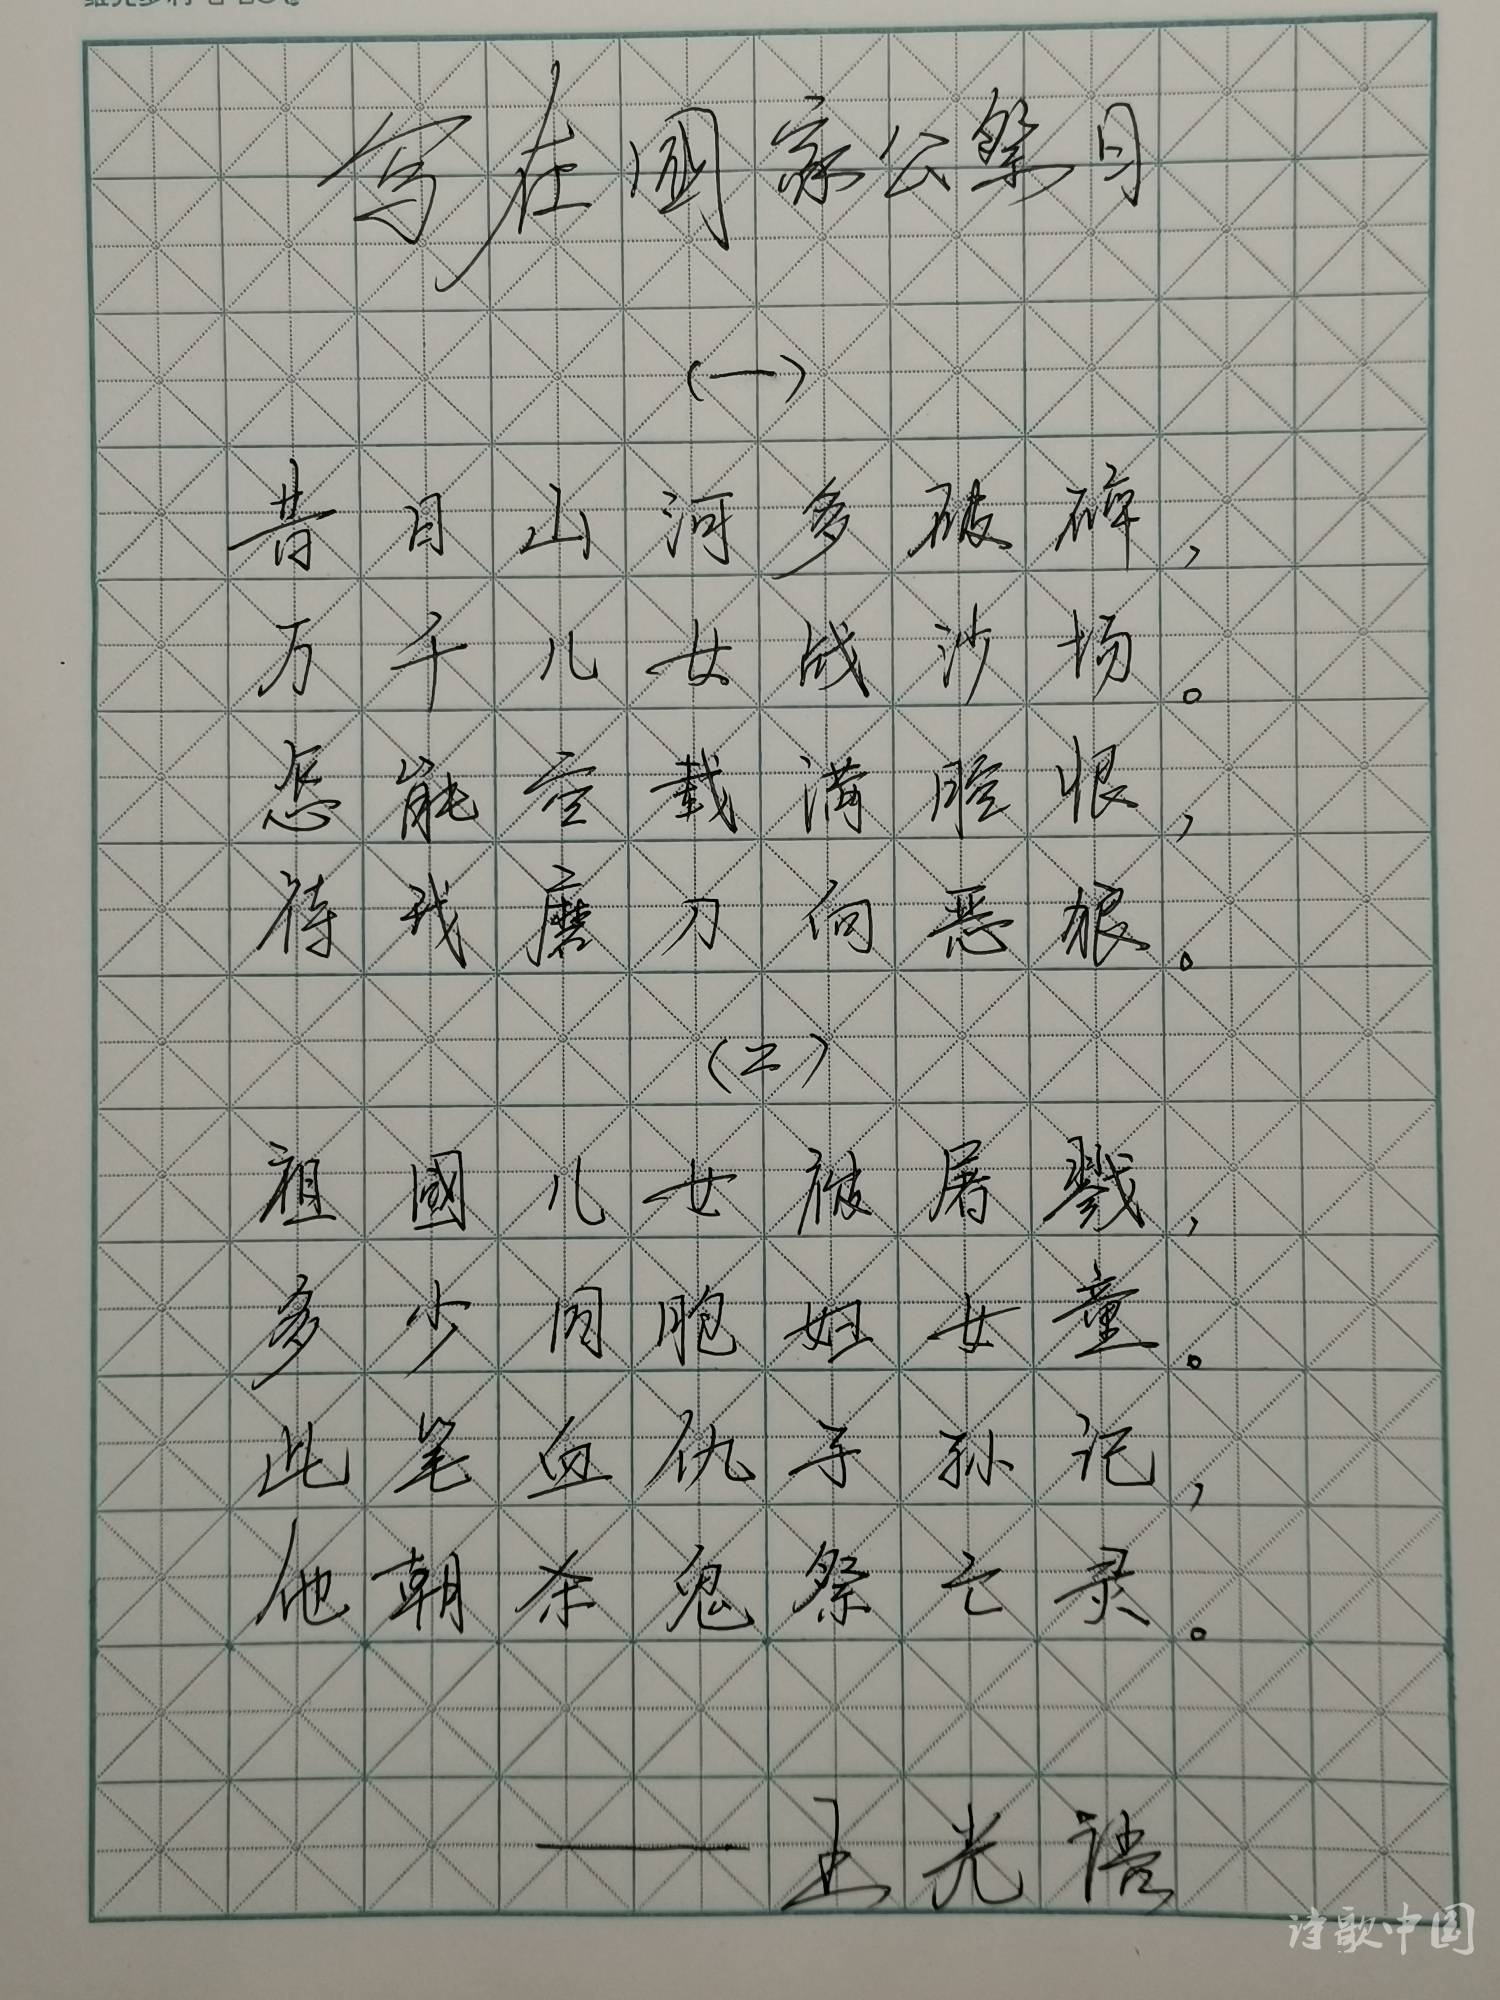 写在國家公祭日
（一）
昔日山河多破碎，
万千儿女战沙场。
怎能空载满腔恨，
待我磨刀向恶狼。
（二）
祖國儿女被屠戮，
多少同胞妇女童。
此笔血仇子孙记，
他朝杀鬼祭亡灵。
——王光
诗歌中国